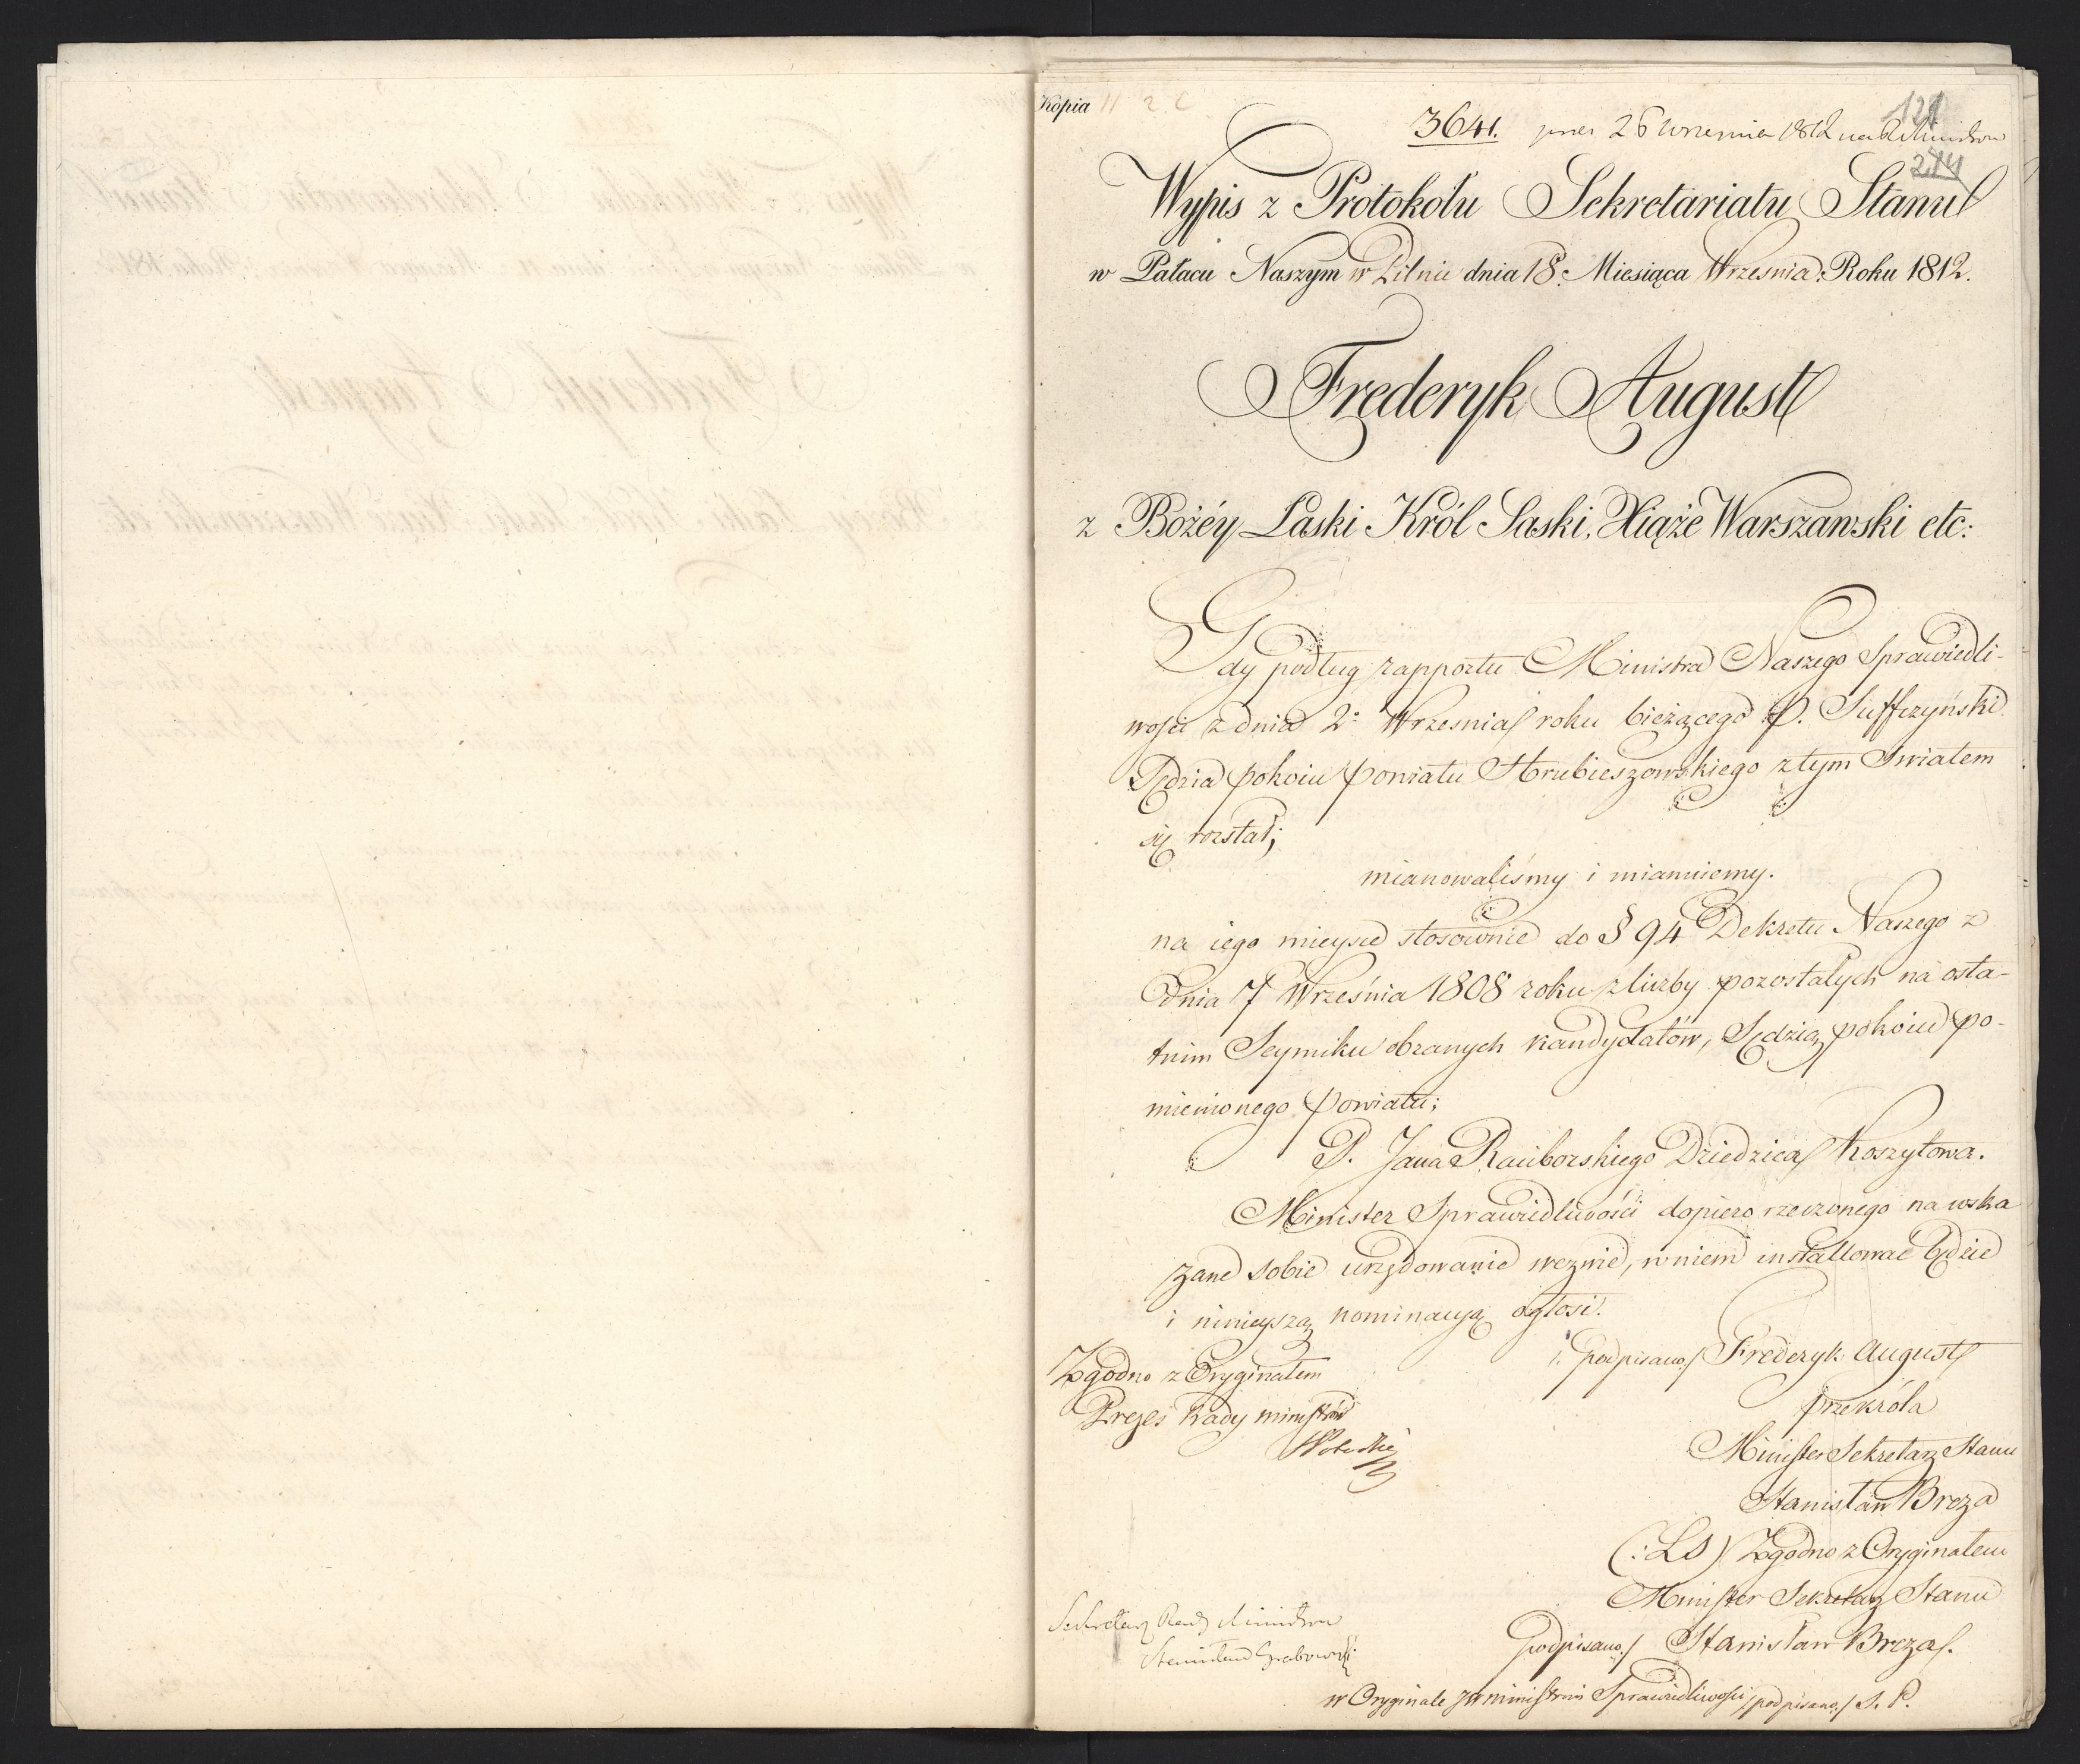 Kopia
121
3641. prez 26 Wrzesnia 1812 na R Ministrow
274
Wypis z Protokołu Sekretariatu Stanu
w Pałacu Naszym w Pilnie dnia 18. Miesiąca Wrzesnia. Roku 1812.
Frederyk August
z Bożéy Łaski Król Saski, Xiąże Warszawski etc:
Gdy podług rapportu Ministra Naszego Sprawiedli-
wości z dnia 2° Wrzesnia roku bieżącego P. Suffczyński
Sędzia pokoiu Powiatu Hrubieszowskiego z tym Swiatem
się rozstał;
mianowaliśmy i mianuiemy.
na iego mieysce stosownie do § 94 Dekretu Naszego z
Dnia 7 Września 1808 roku z liczby pozostałych na osta-
tnim Seymiku obranych kandydatów, Sędzią pokoiu po-
mienionego Powiatu;
P. Jana Raciborskiego Dziedzica Koszytowa.
Minister Sprawiedliwości dopiero rzeczonego na wska
zane sobie urzędowanie wezwie, w niem installować będzie
i ninieyszą nominacyą ogłosi.
/. podpisano./ Frederyk August
Zgodno z Oryginałem
przez króla
Prezes Rady ministrów
Minister Sekretarz Stanu
Stanisław Breza
(: LS) Zgodno z Oryginałem
Minister Sekretarz Stanu
Sekretarz Rady Ministrow
podpisano./ Stanisław Breza/.
Stanisław Grabowski
w Oryginale za ministrem Sprawiedliwości /podpisano./ S. P.